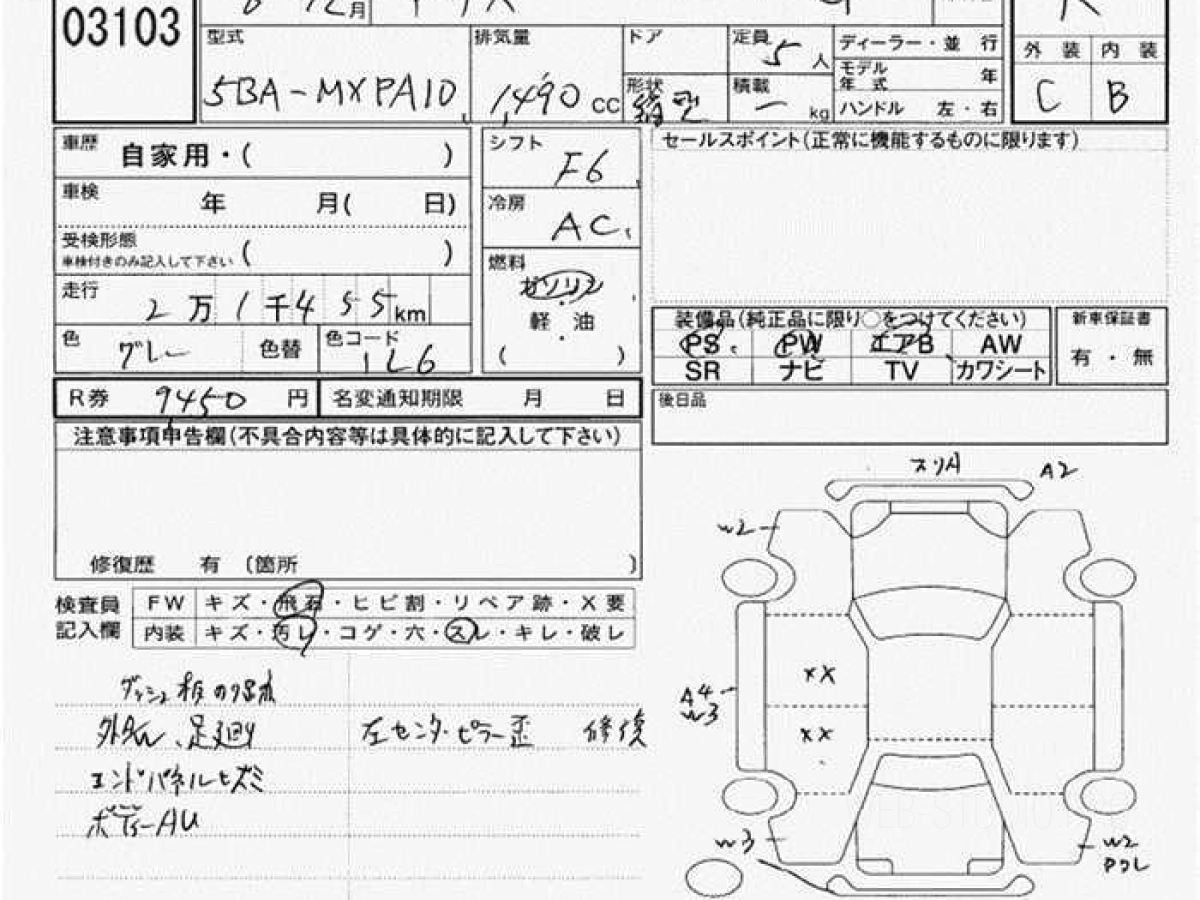 03103
月
型式
5BA-MXPA10
排気量
1,490 CC
ドア
形状
箱型
定員 5 人
積載 ー kg
ディーラー・並 行
モデル年式 年
ハンドル 左・右
外 装 内 装
C B
車歴 自家用・( )
車検 年 月( 日)
受検形態 ( )
車検付きのみ記入して下さい
走行 2 万 1 千 4 5 5 km
色 グレー 色替
色コード 1L6
シフト F6
冷房 AC
燃料 ガソリン
・
軽 油
・
( )
セールスポイント(正常に機能するものに限ります)
装備品(純正品に限り○をつけてください)
PS PW エアB AW
SR ナビ TV カワシート
新車保証書
有 ・ 無
R券 9450 円 名変通知期限 月 日
後日品
注意事項申告欄(不具合内容等は具体的に記入して下さい)
修復歴 有 〔箇所 〕
検査員記入欄
FW キズ・飛石・ヒビ割・リペア跡・X要
内装 キズ・汚レ・コゲ・穴・スレ・キレ・破レ
外AW、足廻り
左センターピラー歪 修復
エンドパネルヒズミ
ボディーAU
スリA A2
W2
XX
A4
W3
XX
W3
W2